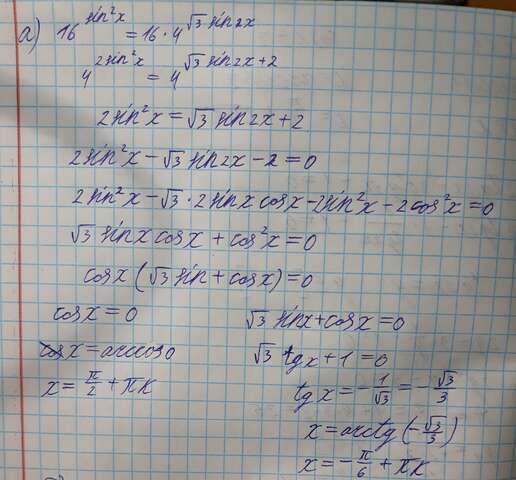 а) 16^(sin²x) = 16 · 4^(√3 sin2x)
4^(2sin²x) = 4^(√3 sin2x + 2)
2sin²x = √3 sin2x + 2
2sin²x − √3 sin2x − 2 = 0
2sin²x − √3 · 2sinx cosx − 2sin²x − 2cos²x = 0
√3 sinx cosx + cos²x = 0
cosx (√3 sin + cosx) = 0
cosx = 0
x = arccos0
x = π/2 + πk
√3 sinx + cosx = 0
√3 tgx + 1 = 0
tgx = −1/√3 = −√3/3
x = arctg(−√3/3)
x = −π/6 + πk